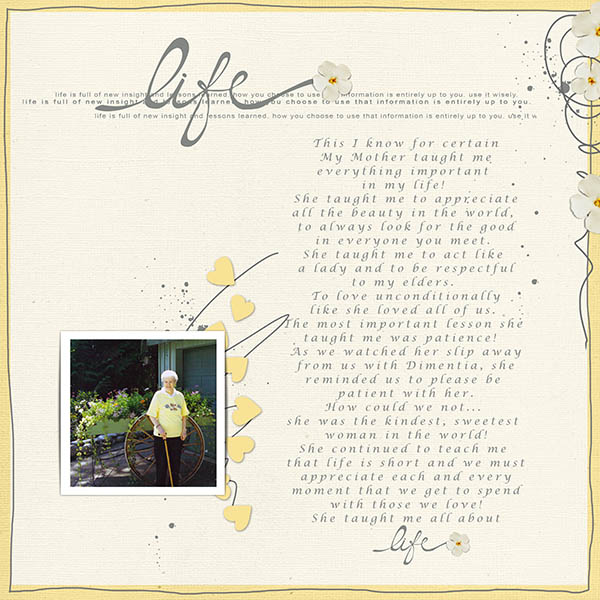 life
life is full of new insight and lessons learned. how you choose to use information is entirely up to you. use it wisely.
life is full of new insight and lessons learned. how you choose to use that information is entirely up to you.
life is full of new insight and lessons learned. how you choose to use that information is entirely up to you. use it w
This I know for certain
My Mother taught me
everything important
in my life!
She taught me to appreciate
all the beauty in the world,
to always look for the good
in everyone you meet.
She taught me to act like
a lady and to be respectful
to my elders.
To love unconditionally
like she loved all of us.
The most important lesson she
taught me was patience!
As we watched her slip away
from us with Dimentia, she
reminded us to please be
patient with her.
How could we not...
she was the kindest, sweetest
woman in the world!
She continued to teach me
that life is short and we must
appreciate each and every
moment that we get to spend
with those we love!
She taught me all about
life